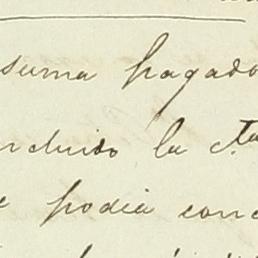 suma pagado
ncluido la cta
podia conc